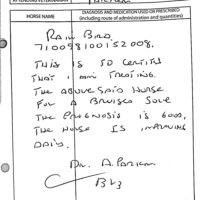 ATTENDING VETERINARIAN
DIAGNOSIS AND MEDICATION USED OR PRESCRIBED
HORSE NAME
(include route of administration and quantities)
RAIN BIRD
710098100152008.
THIS IS TO CERTIFY
THAT I AM TREATING
THE ABOVE SAID HORSE
FOR A BRUISED SOLE
THE PROGNOSIS IS GOOD,
THE HORSE IS IMPROVING
DAILY.
DR. A.